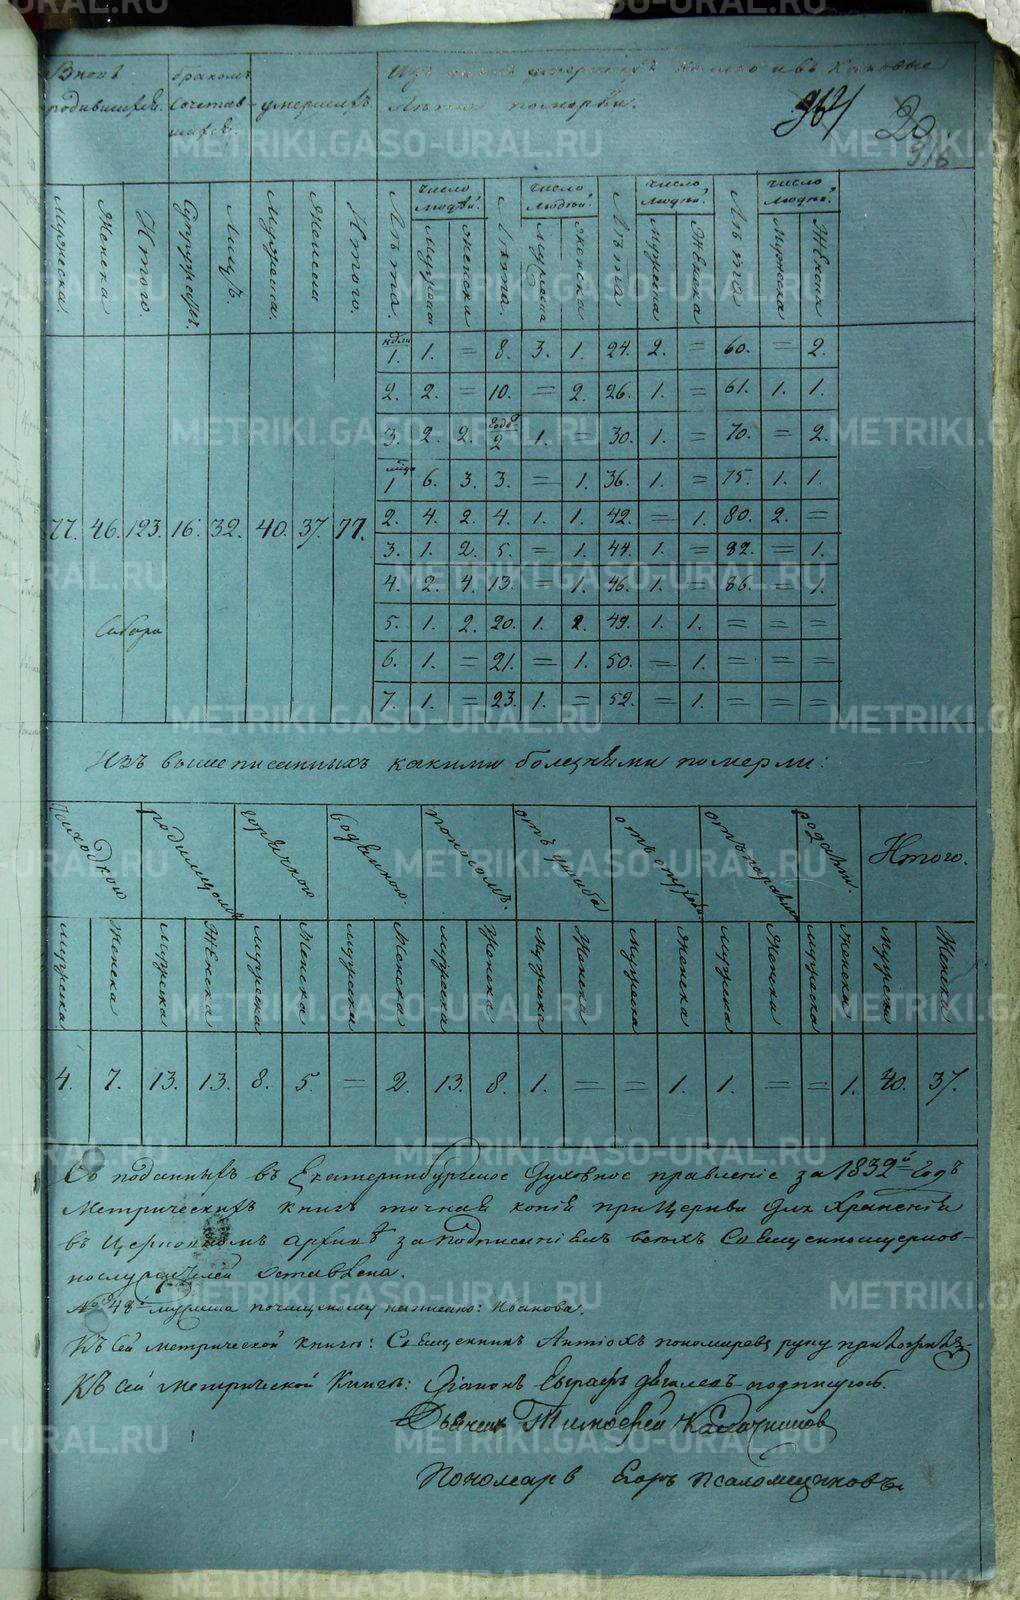 METRIKI.GASO-URAL.RU
Вновь родившихся.
Бракомъ сочетавшихся.
умершихъ.
умершихъ
лѣта померли.
964
20
916
Мужеска. Женска Итого. Супружествъ. Лицъ. Мужеска. Женска Итого. Лѣта. Число людей. Мужеска Женска Лѣта. Число людей. Мужеска Женска Лѣта Число людей. Мужеска Женска Лѣта Число людей. Мужеска Женска
77. 46. 123. 16. 32. 40. 37. 77.
нѣдли 1. 1. = 8. 3. 1. 24. 2. = 60. = 2.
2. 2. = 10. = 2. 26. 1. = 61. 1. 1.
3. 2. 2. года 2 1. = 30. 1. = 70. = 2.
1 6. 3. 3. = 1. 36. 1. = 75. 1. 1.
2. 4. 2. 4. 1. 1. 42. = 1. 80. 2. =
3. 1. 2. 5. = 1. 44. 1. = 82. = 1.
4. 2. 4. 13. = 1. 46. 1. = 86. = 1.
5. 1. 2. 20. 1. 2. 49. 1. 1. = = =
6. 1. = 21. = 1. 50. = 1. = = =
7. 1. = 23. 1. = 52. = 1. = = =
Изъ вышеписанныхъ какими болезнями померли:
родимцомъ горячкою водяною. поносомъ. отъ ушиба Итого.
Мужеска Женска Мужеска Женска Мужеска Женска Мужеска Женска Мужеска Женска Мужеска Женска Мужеска Женска Мужеска Женска Мужеска Женска Мужеска Женска
4. 7. 13. 13. 8. 5. = 2. 13. 8. 1. = = 1. 1. = = 1. 40. 37.
Съ поданныхъ въ Екатеринбургское Духовное правленіе за 1832й Годъ
Метрическихъ книгъ точная копія при Церкви для Храненія
въ Церковномъ Архивѣ за подписаніемъ всѣхъ Священноцерков-
нослужителей оставлена.
№ 48 мужеска почищеному написано: Иванова.
Къ сей метрической книгѣ: Священникъ Антіохъ Пономаревъ руку приложилъ
Къ сей Метрической Книгѣ: Діаконъ подписуюсь.
Дьячекъ Тимофей Калачниковъ
Пономарь Егоръ Псаломщиковъ